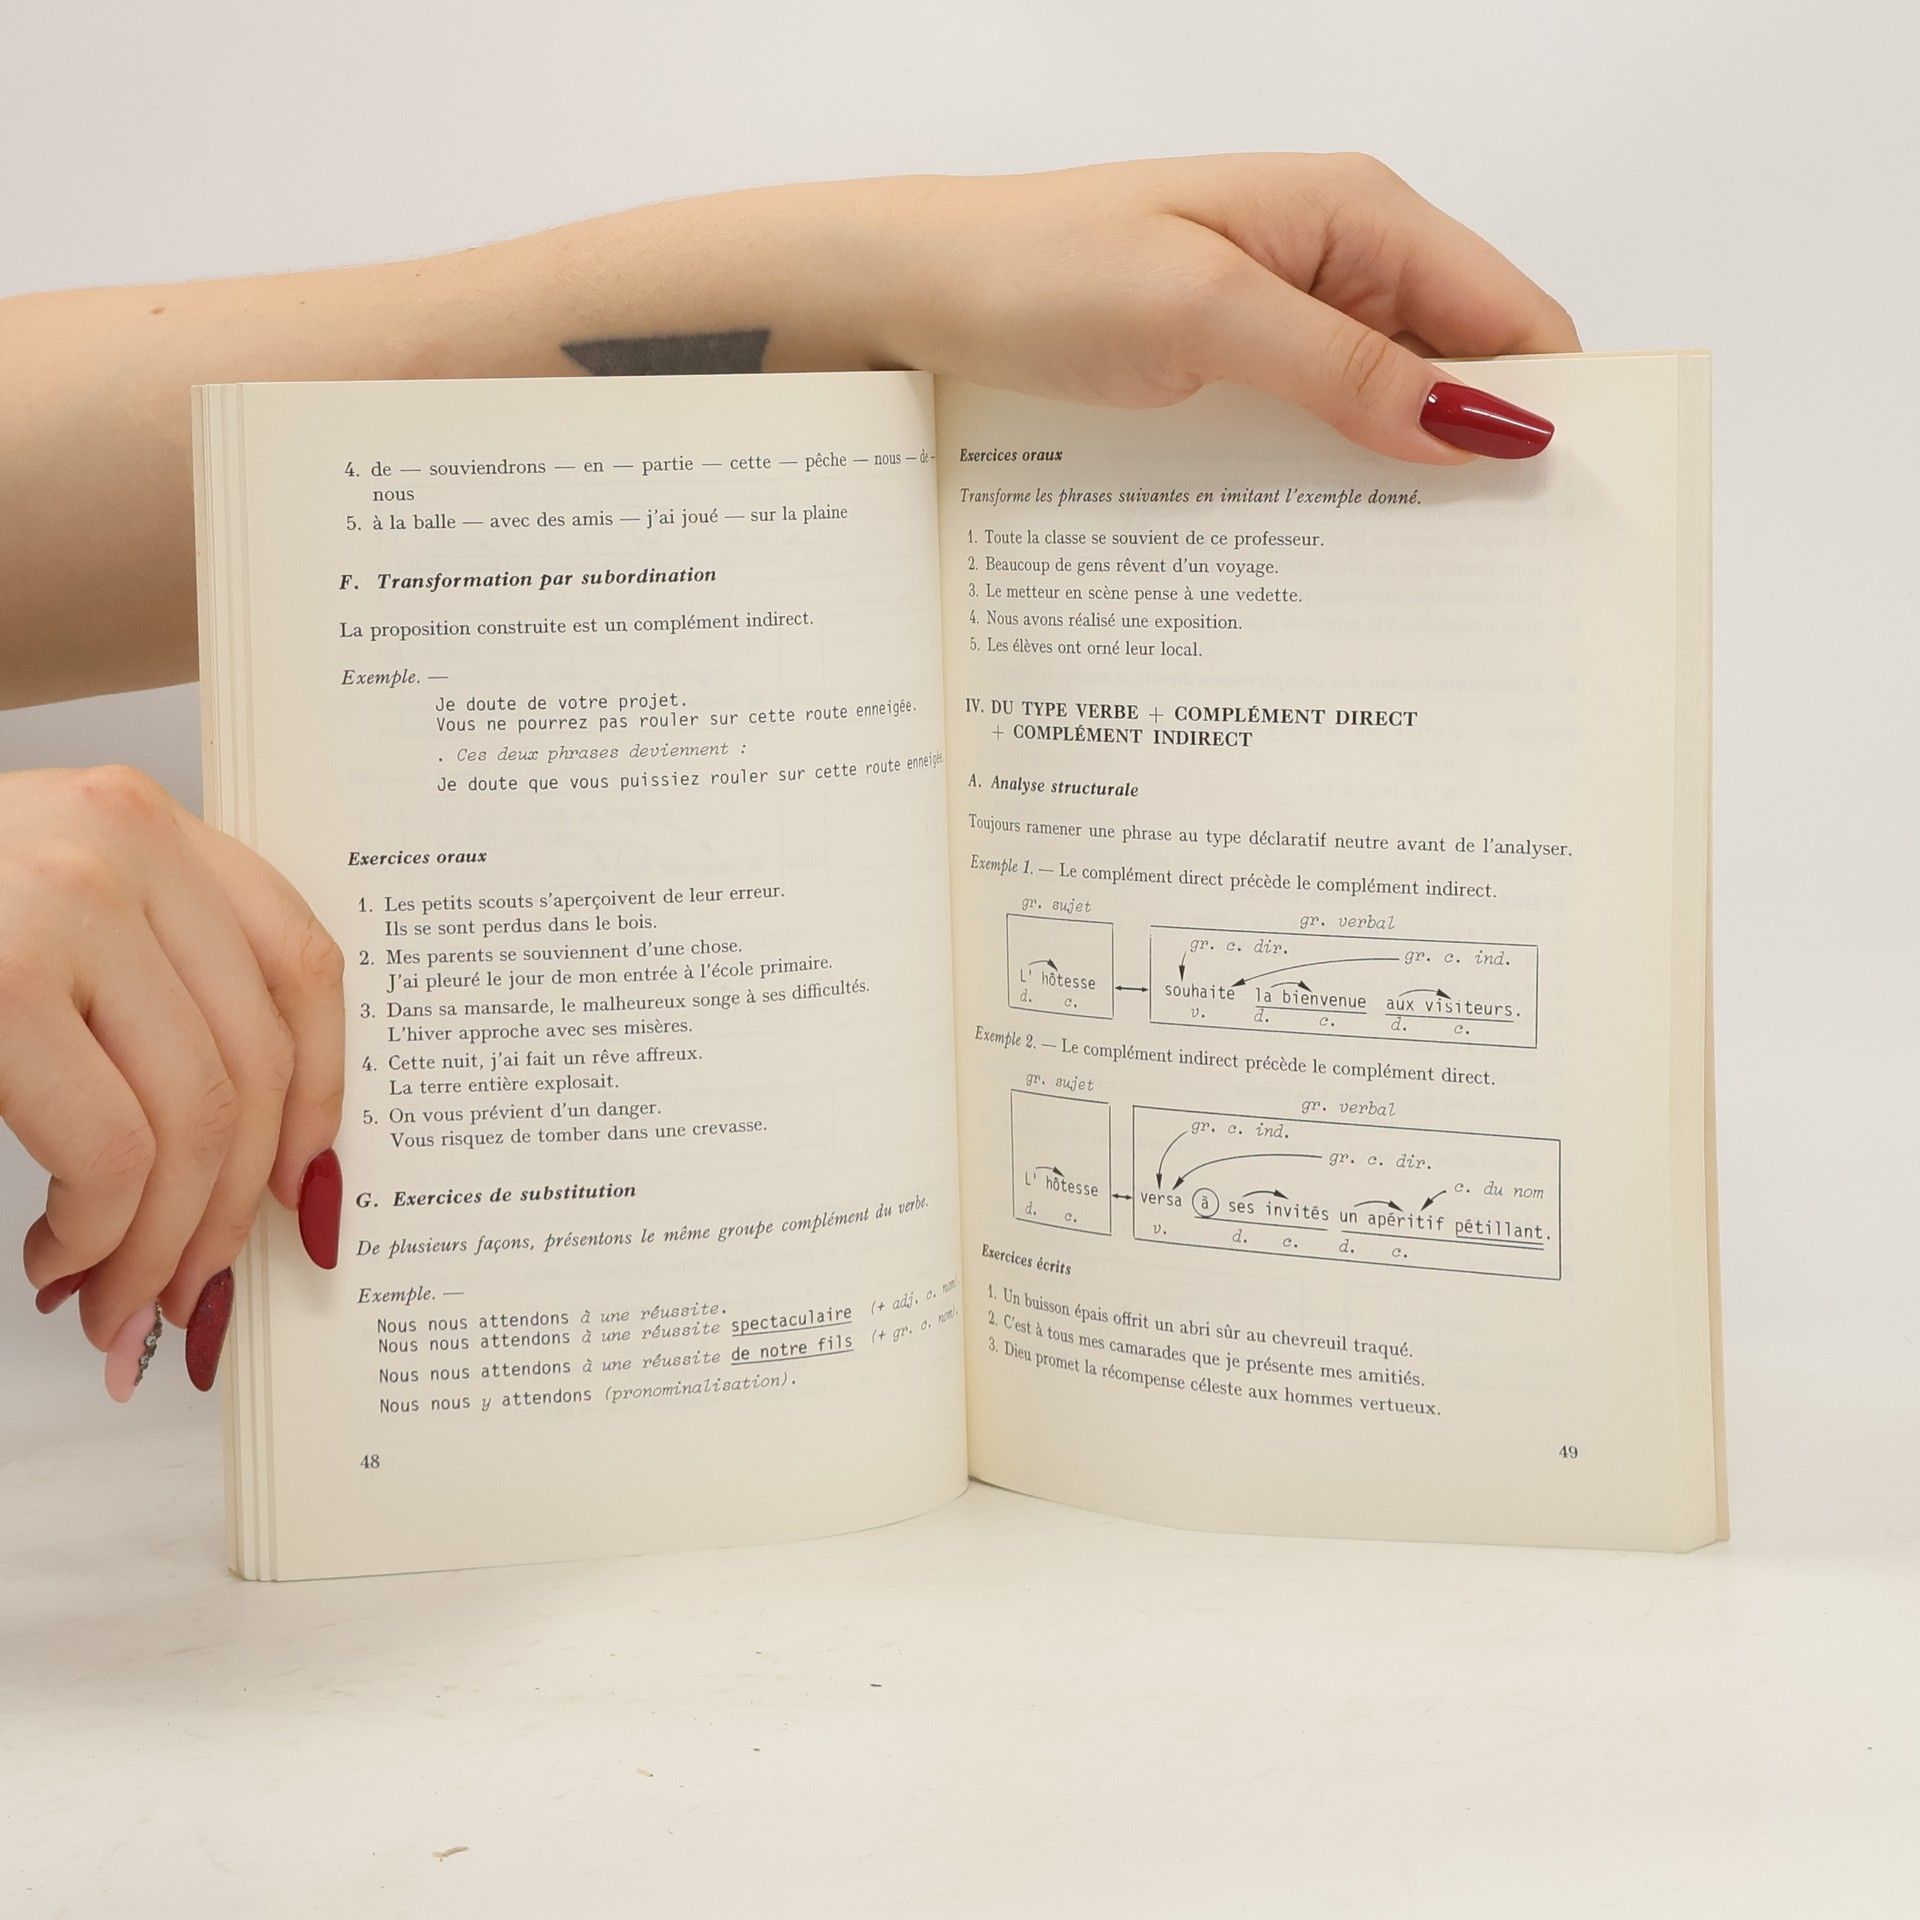 4. de — souviendrons — en — partie — cette — pêche — nous — de —
nous
5. à la balle — avec des amis — j'ai joué — sur la plaine
F. Transformation par subordination
La proposition construite est un complément indirect.
Exemple. —
Je doute de votre projet.
Vous ne pourrez pas rouler sur cette route enneigée.
. Ces deux phrases deviennent :
Je doute que vous puissiez rouler sur cette route enneigée
Exercices oraux
1. Les petits scouts s'aperçoivent de leur erreur.
Ils se sont perdus dans le bois.
2. Mes parents se souviennent d'une chose.
J'ai pleuré le jour de mon entrée à l'école primaire.
3. Dans sa mansarde, le malheureux songe à ses difficultés.
L'hiver approche avec ses misères.
4. Cette nuit, j'ai fait un rêve affreux.
La terre entière explosait.
5. On vous prévient d'un danger.
Vous risquez de tomber dans une crevasse.
G. Exercices de substitution
De plusieurs façons, présentons le même groupe complément du verbe.
Exemple. —
Nous nous attendons à une réussite.
Nous nous attendons à une réussite spectaculaire (+ adj. c. nom)
Nous nous attendons à une réussite de notre fils (+ gr. c. nom).
Nous nous y attendons (pronominalisation).
48
Exercices oraux
Transforme les phrases suivantes en imitant l'exemple donné.
1. Toute la classe se souvient de ce professeur.
2. Beaucoup de gens rêvent d'un voyage.
3. Le metteur en scène pense à une vedette.
4. Nous avons réalisé une exposition.
5. Les élèves ont orné leur local.
IV. DU TYPE VERBE + COMPLÉMENT DIRECT
+ COMPLÉMENT INDIRECT
A. Analyse structurale
Toujours ramener une phrase au type déclaratif neutre avant de l'analyser.
Exemple 1. — Le complément direct précède le complément indirect.
gr. sujet
gr. verbal
gr. c. dir.
gr. c. ind.
L' hôtesse souhaite la bienvenue aux visiteurs.
d. c. v. d. c. d. c.
Exemple 2. — Le complément indirect précède le complément direct.
gr. sujet
gr. verbal
gr. c. ind.
gr. c. dir.
c. du nom
L' hôtesse versa à ses invités un apéritif pétillant.
d. c. v. d. c. d. c.
Exercices écrits
1. Un buisson épais offrit un abri sûr au chevreuil traqué.
2. C'est à tous mes camarades que je présente mes amitiés.
3. Dieu promet la récompense céleste aux hommes vertueux.
49